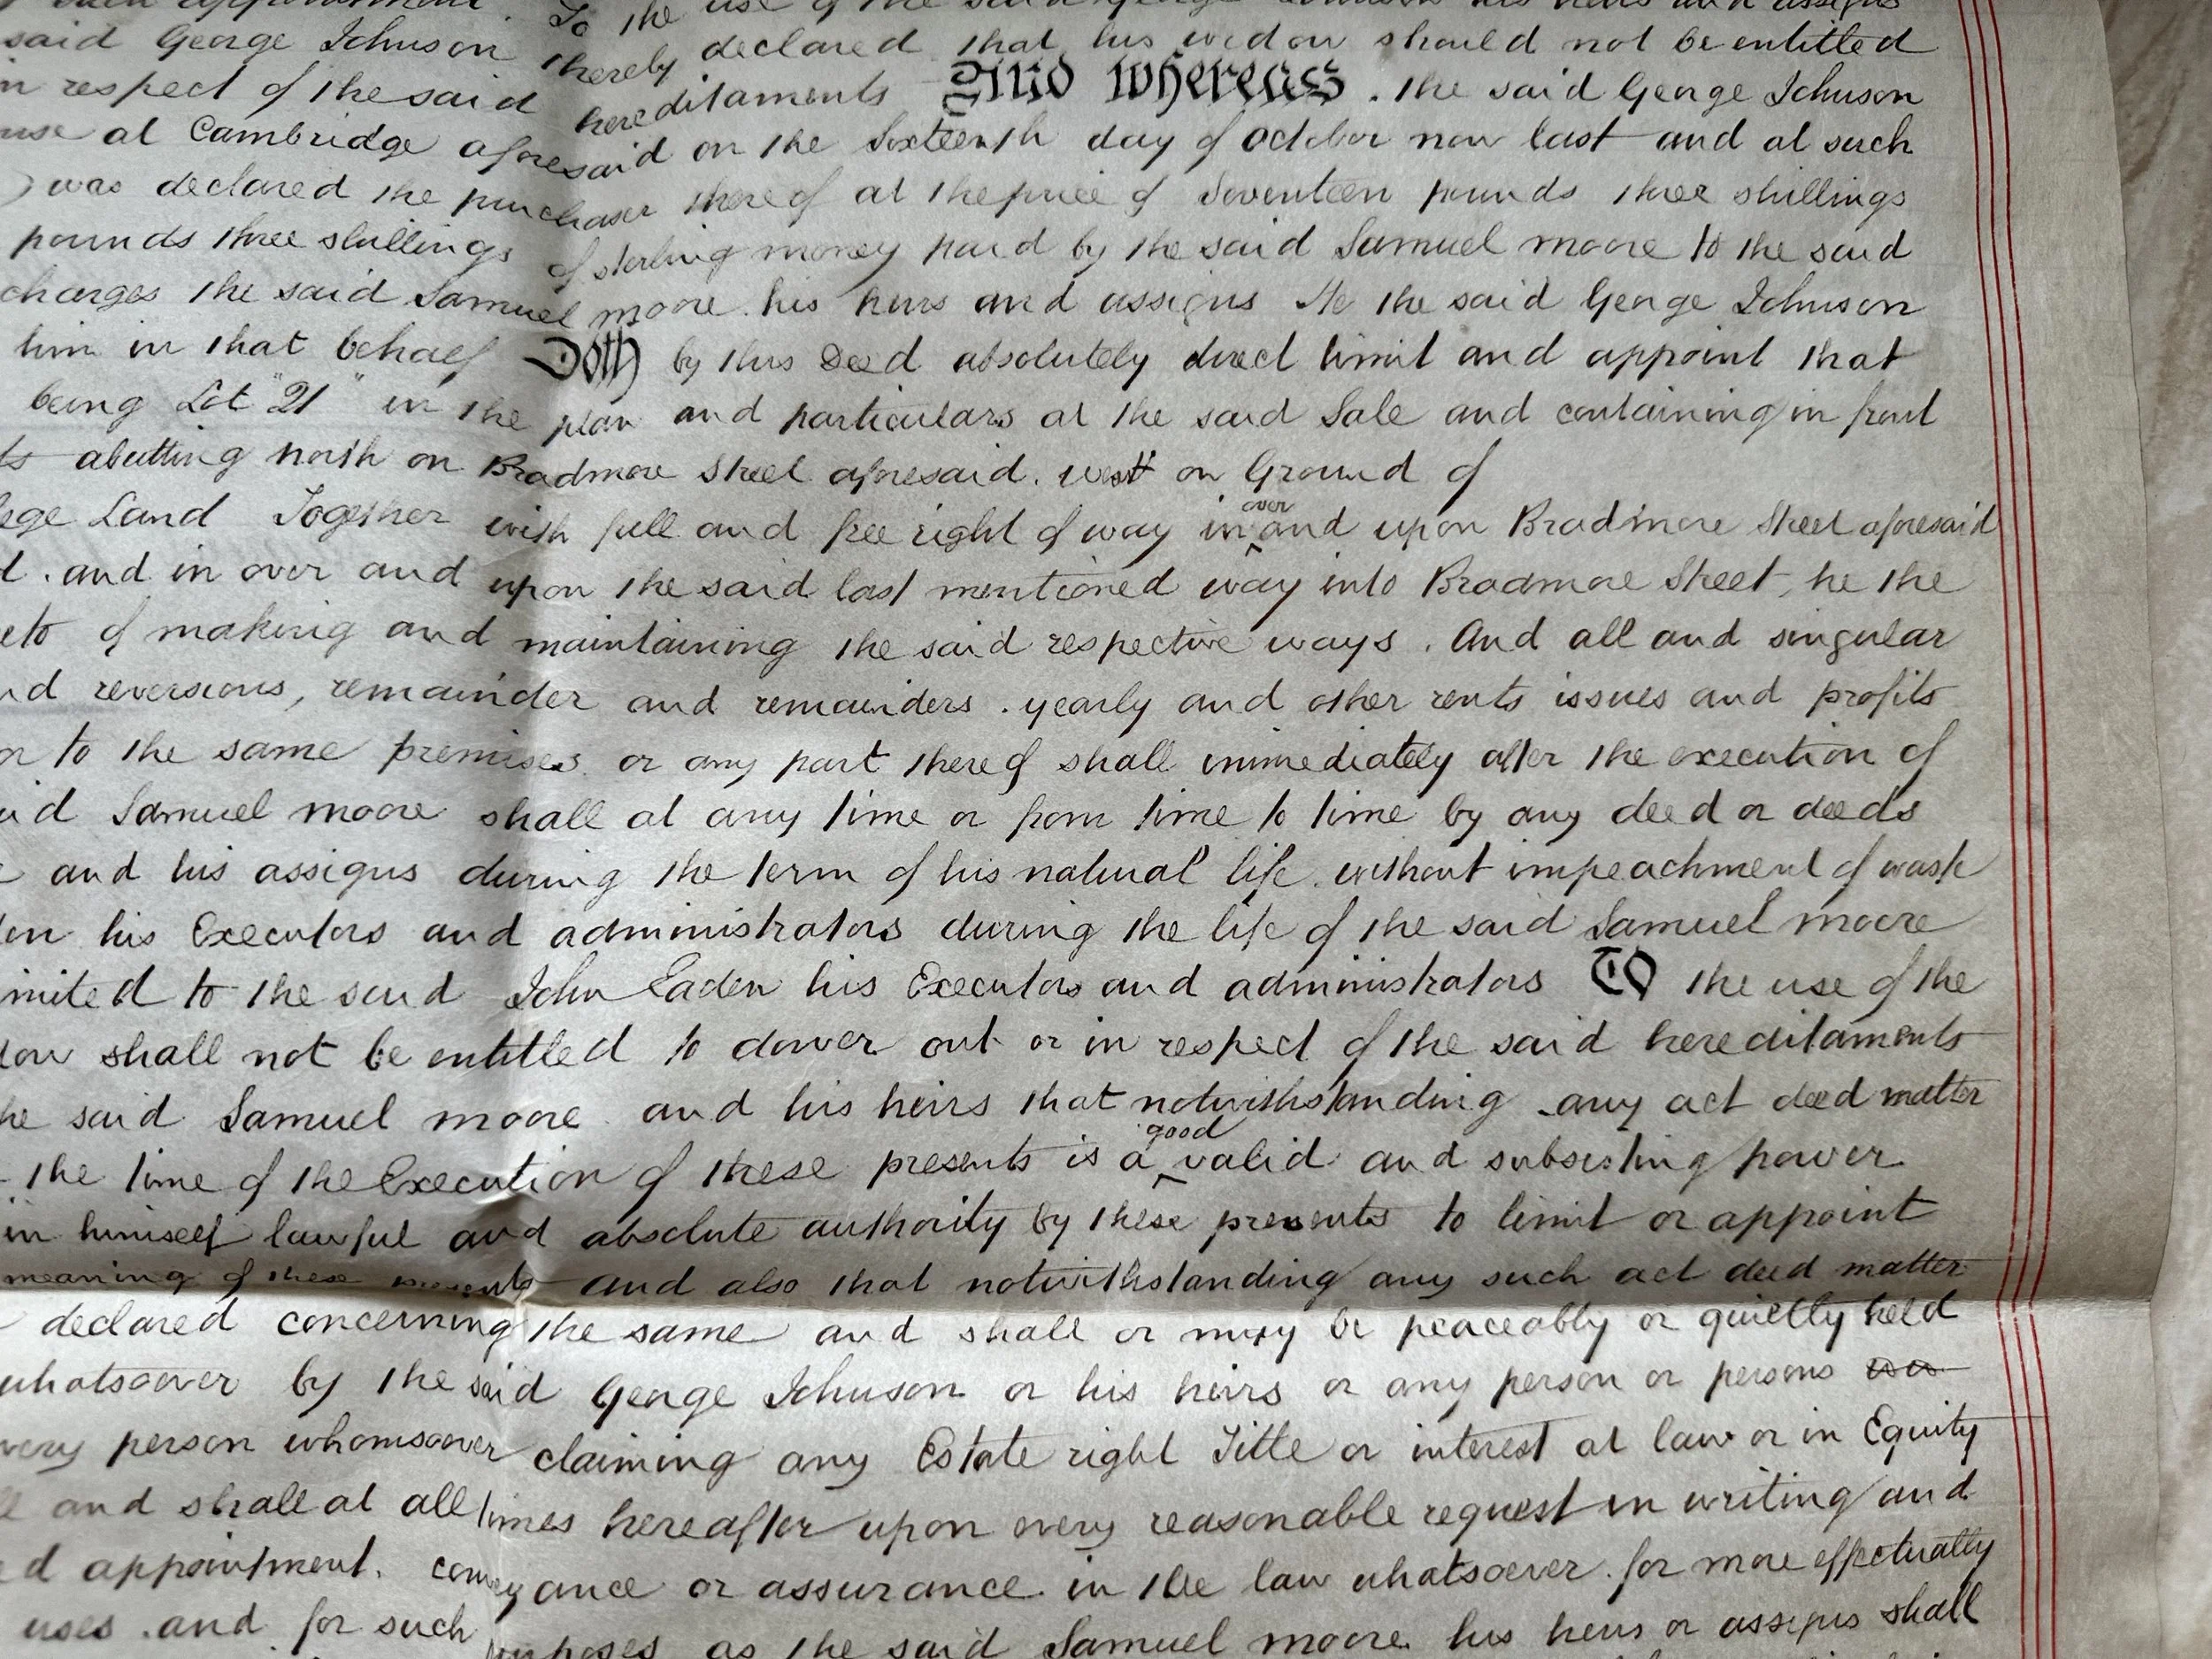 To the use of the said George Johnson his heirs and assigns
said George Johnson thereby declared that his widow should not be entitled
in respect of the said hereditaments And Whereas . the said George Johnson
at Cambridge aforesaid on the Sixteenth day of October now last and at such
was declared the purchaser thereof at the price of Seventeen pounds three shillings
pounds three shillings of sterling money paid by the said Samuel moore to the said
charges the said Samuel moore . his heirs and assigns He the said George Johnson
him in that behalf Doth by this Deed absolutely direct limit and appoint that
being Lot "21" in the plan and particulars at the said Sale and containing in front
abutting north on Bradmore Street aforesaid . west on Ground of
Land Together with full and free right of way in over and upon Bradmore Street aforesaid
. and in over and upon the said last mentioned way into Bradmore Street, he the
of making and maintaining the said respective ways . And all and singular
reversions, remainder and remainders . yearly and other rents issues and profits
to the same premises or any part thereof shall immediately after the execution of
Samuel moore shall at any time or from time to time by any deed or deeds
and his assigns during the term of his natural life . without impeachment of waste
his Executors and administrators during the life of the said Samuel moore
to the said John Eaden his Executors and administrators TO the use of the
shall not be entitled to dower out or in respect of the said hereditaments
said Samuel moore . and his heirs that notwithstanding any act deed matter
the time of the Execution of these presents is a good valid and subsisting power
in himself lawful and absolute authority by these presents to limit or appoint
meaning of these presents and also that notwithstanding any such act deed matter
declared concerning the same and shall or may be peaceably or quietly held
whatsoever by the said George Johnson or his heirs or any person or persons
person whomsoever claiming any Estate right Title or interest at law or in Equity
and shall at all times hereafter upon every reasonable request in writing and
appointment . conveyance or assurance . in the law whatsoever . for more effectually
uses . and for such purposes as the said Samuel moore his heirs or assigns shall